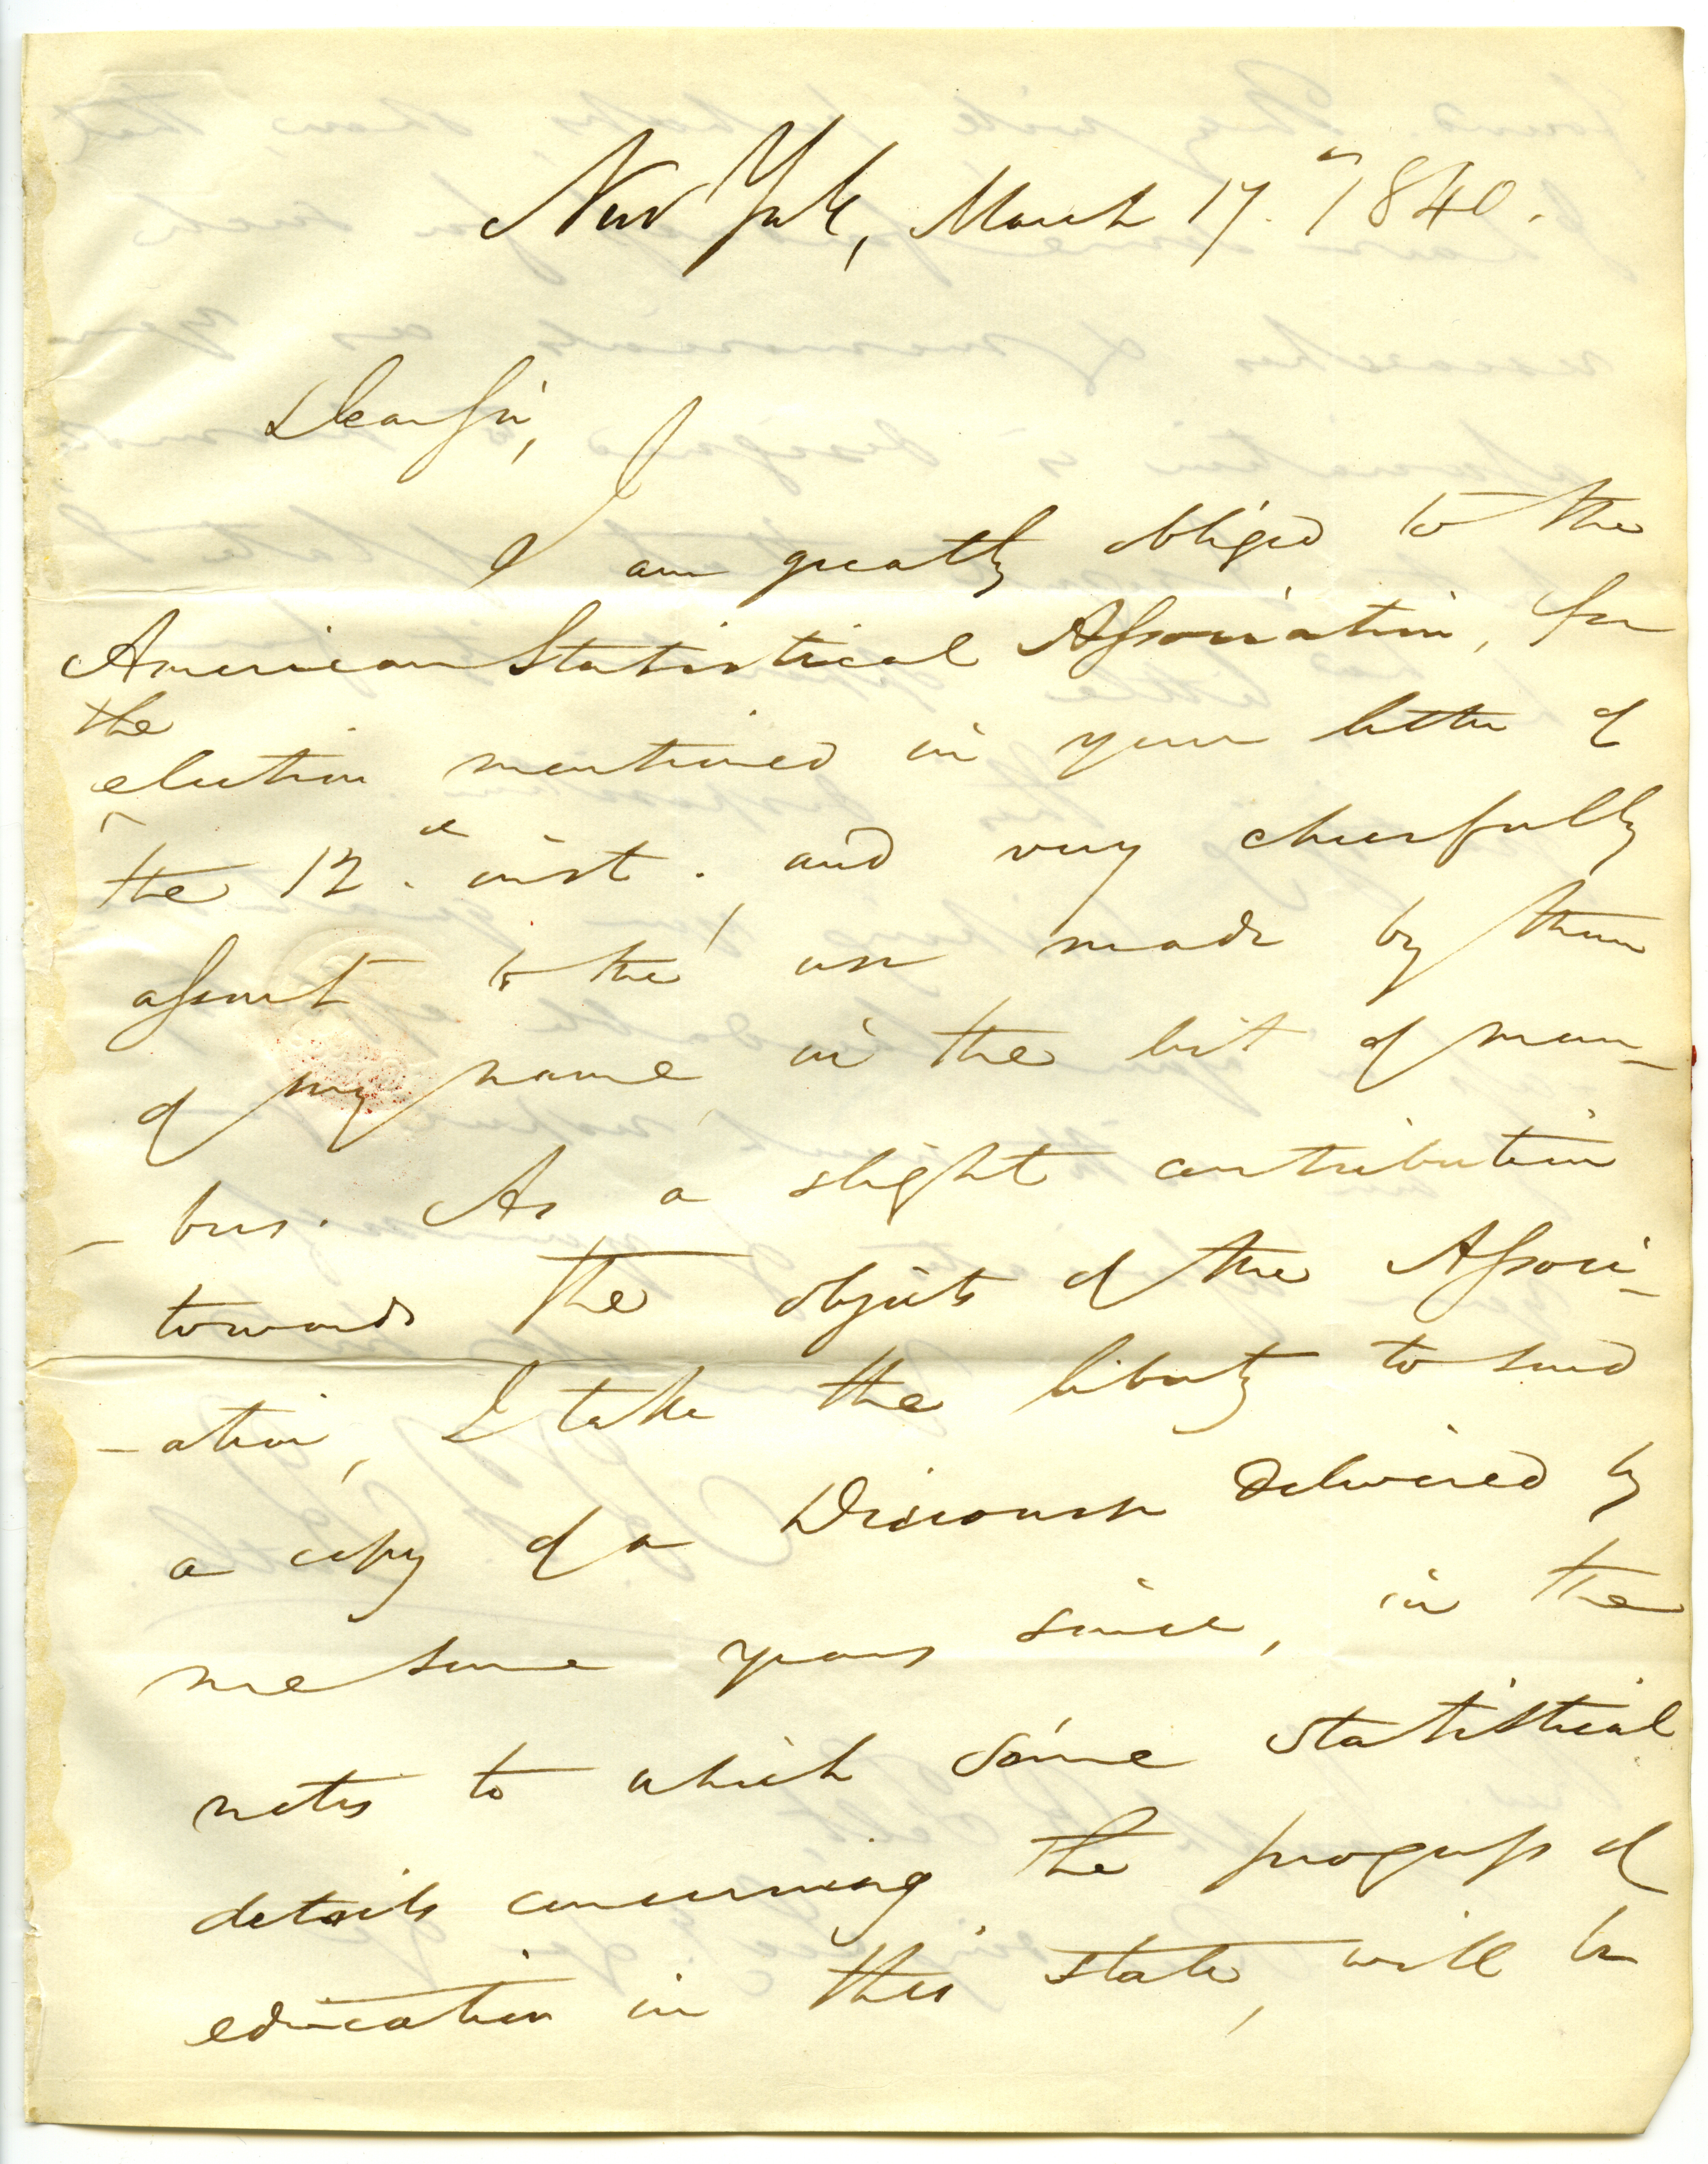 New York, March 17. 1840.
Dear Sir,
I am greatly obliged to the
American Statistical Association, for
the
election mentioned in your letter of
the 12.th inst. and very cheerfully
assent to the use made by them
of my name in the list of mem-
-bers. As a slight contribution
towards the objects of the Associ-
-ation, I take the liberty to send
a copy of a Discourse delivered by
me some years since, in the
notes to which some statistical
details concerning the progress of
education in this state, will be